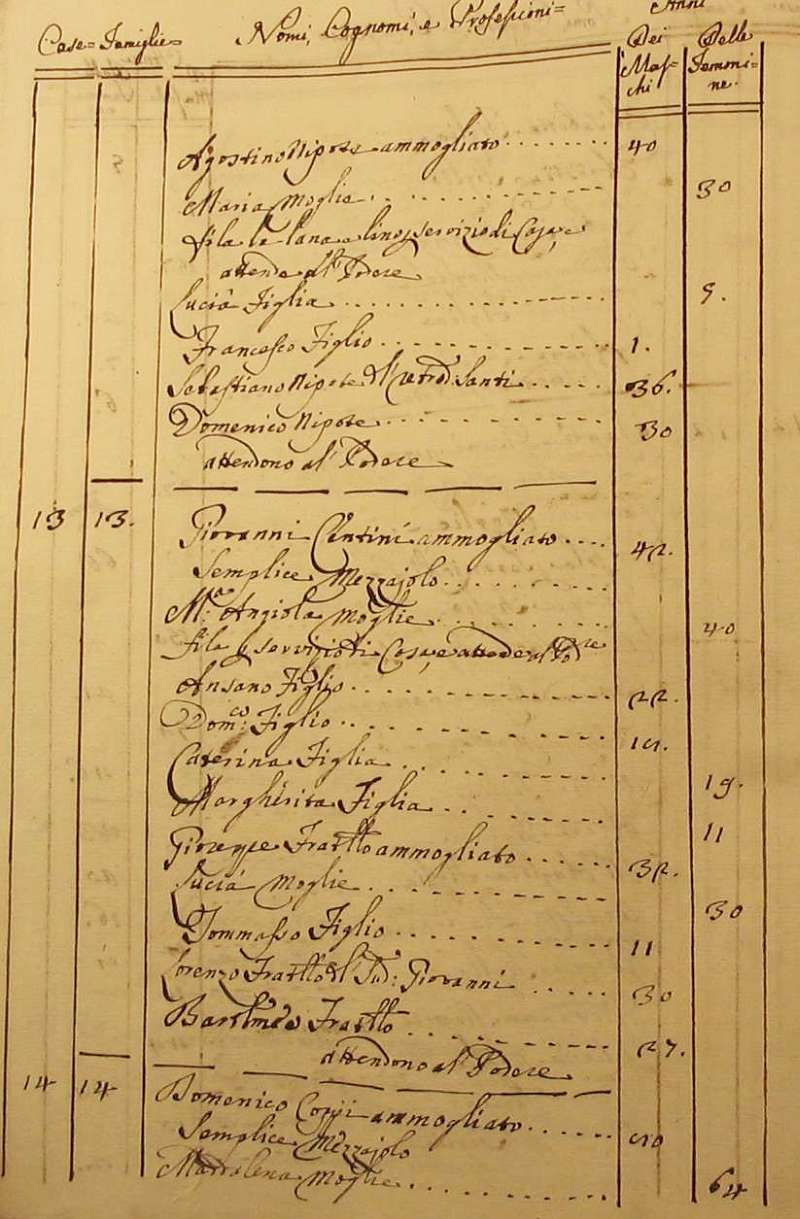 Case= Famiglie= Nomi, Cognomi, e Professioni= Anni
Dei Mas=chi Delle Femmi=ne.
Agostino Nipote ammogliato ........ 40
Maria Moglie .............. 30
fila la lana e lino, servizio di Casa, e
attende al Podere
Lucia Figlia .............. 9.
Francesco Figlio .............. 1.
Sebastiano Nipote d' Santi ..... 36.
Domenico Nipote .............. 30
attendono al Podere
13 13. Giovanni Centini ammogliato .... 42.
Semplice Mezzajolo ..........
M.a Angiola Moglie .......... 40
fila servizio di Casa, e attende al Podre
Ansano Figlio .............. 22.
Dom.co Figlio ..............
Caterina Figlia .............. 19.
Margherita Figlia ........ 11
Giuseppe Fratello ammogliato ..... 32.
Lucia Moglie .............. 30
Tommasso Figlio ............ 11
Lorenzo Frat'llo d'l Sud: Giovanni ..... 30
Fratllo .......... 27.
attendono al Podere
14 14 Domenico ammogliato ......
Semplice Mezzajolo
Maddalena Moglie .......... 64